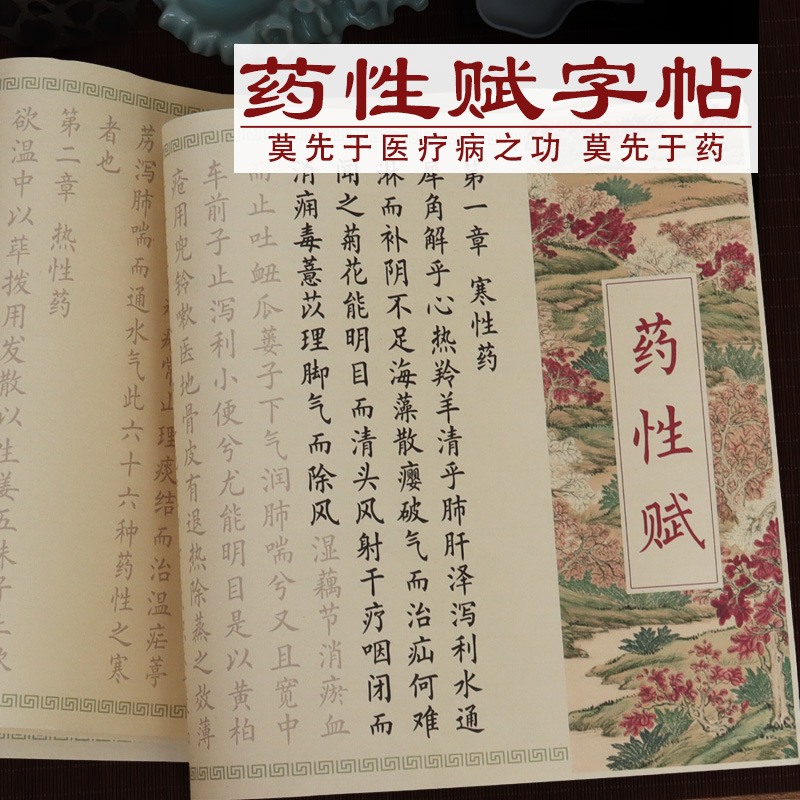 药性赋字帖
莫先于医疗病之功 莫先于药
药性赋
第一章 寒性药
犀角解乎心热羚羊清乎肺肝泽泻利水通
淋而补阴不足海藻散瘿破气而治疝何难
闻之菊花能明目而清头风射干疗咽闭而
消痈毒薏苡理脚气而除风湿藕节消瘀血
而止吐衄瓜蒌子下气润肺喘兮又且宽中
车前子止泻利小便兮尤能明目是以黄柏
疮用兜铃嗽医地骨皮有退热除蒸之效薄
常山理痰结而治温疟葶
苈泻肺喘而通水气此六十六种药性之寒
者也
第二章 热性药
欲温中以荜拨用发散以生姜五味子